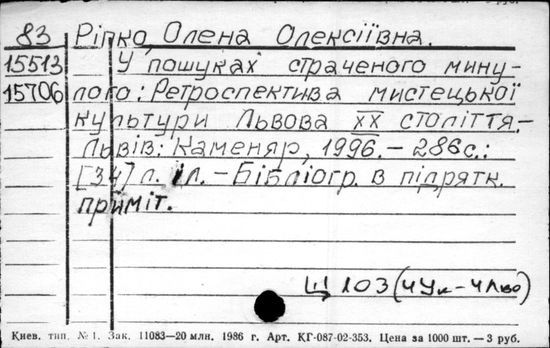 83 Ріпко, Олена Олексіївна.
15513 У пошуках страченого мину-
15706 лого: Ретроспектива мистецької
культури Львова XX століття.-
Львів: Каменяр, 1996.- 286с.:
[34] л. іл.- Бібліогр. в підрятк.
приміт.
103 (ЧУк-ЧЛьво)
Киев. тип. № 1. Зак. 11083—20 млн. 1986 г. Арт. КГ-087-02-353. Цена за 1000 шт. — 3 руб.